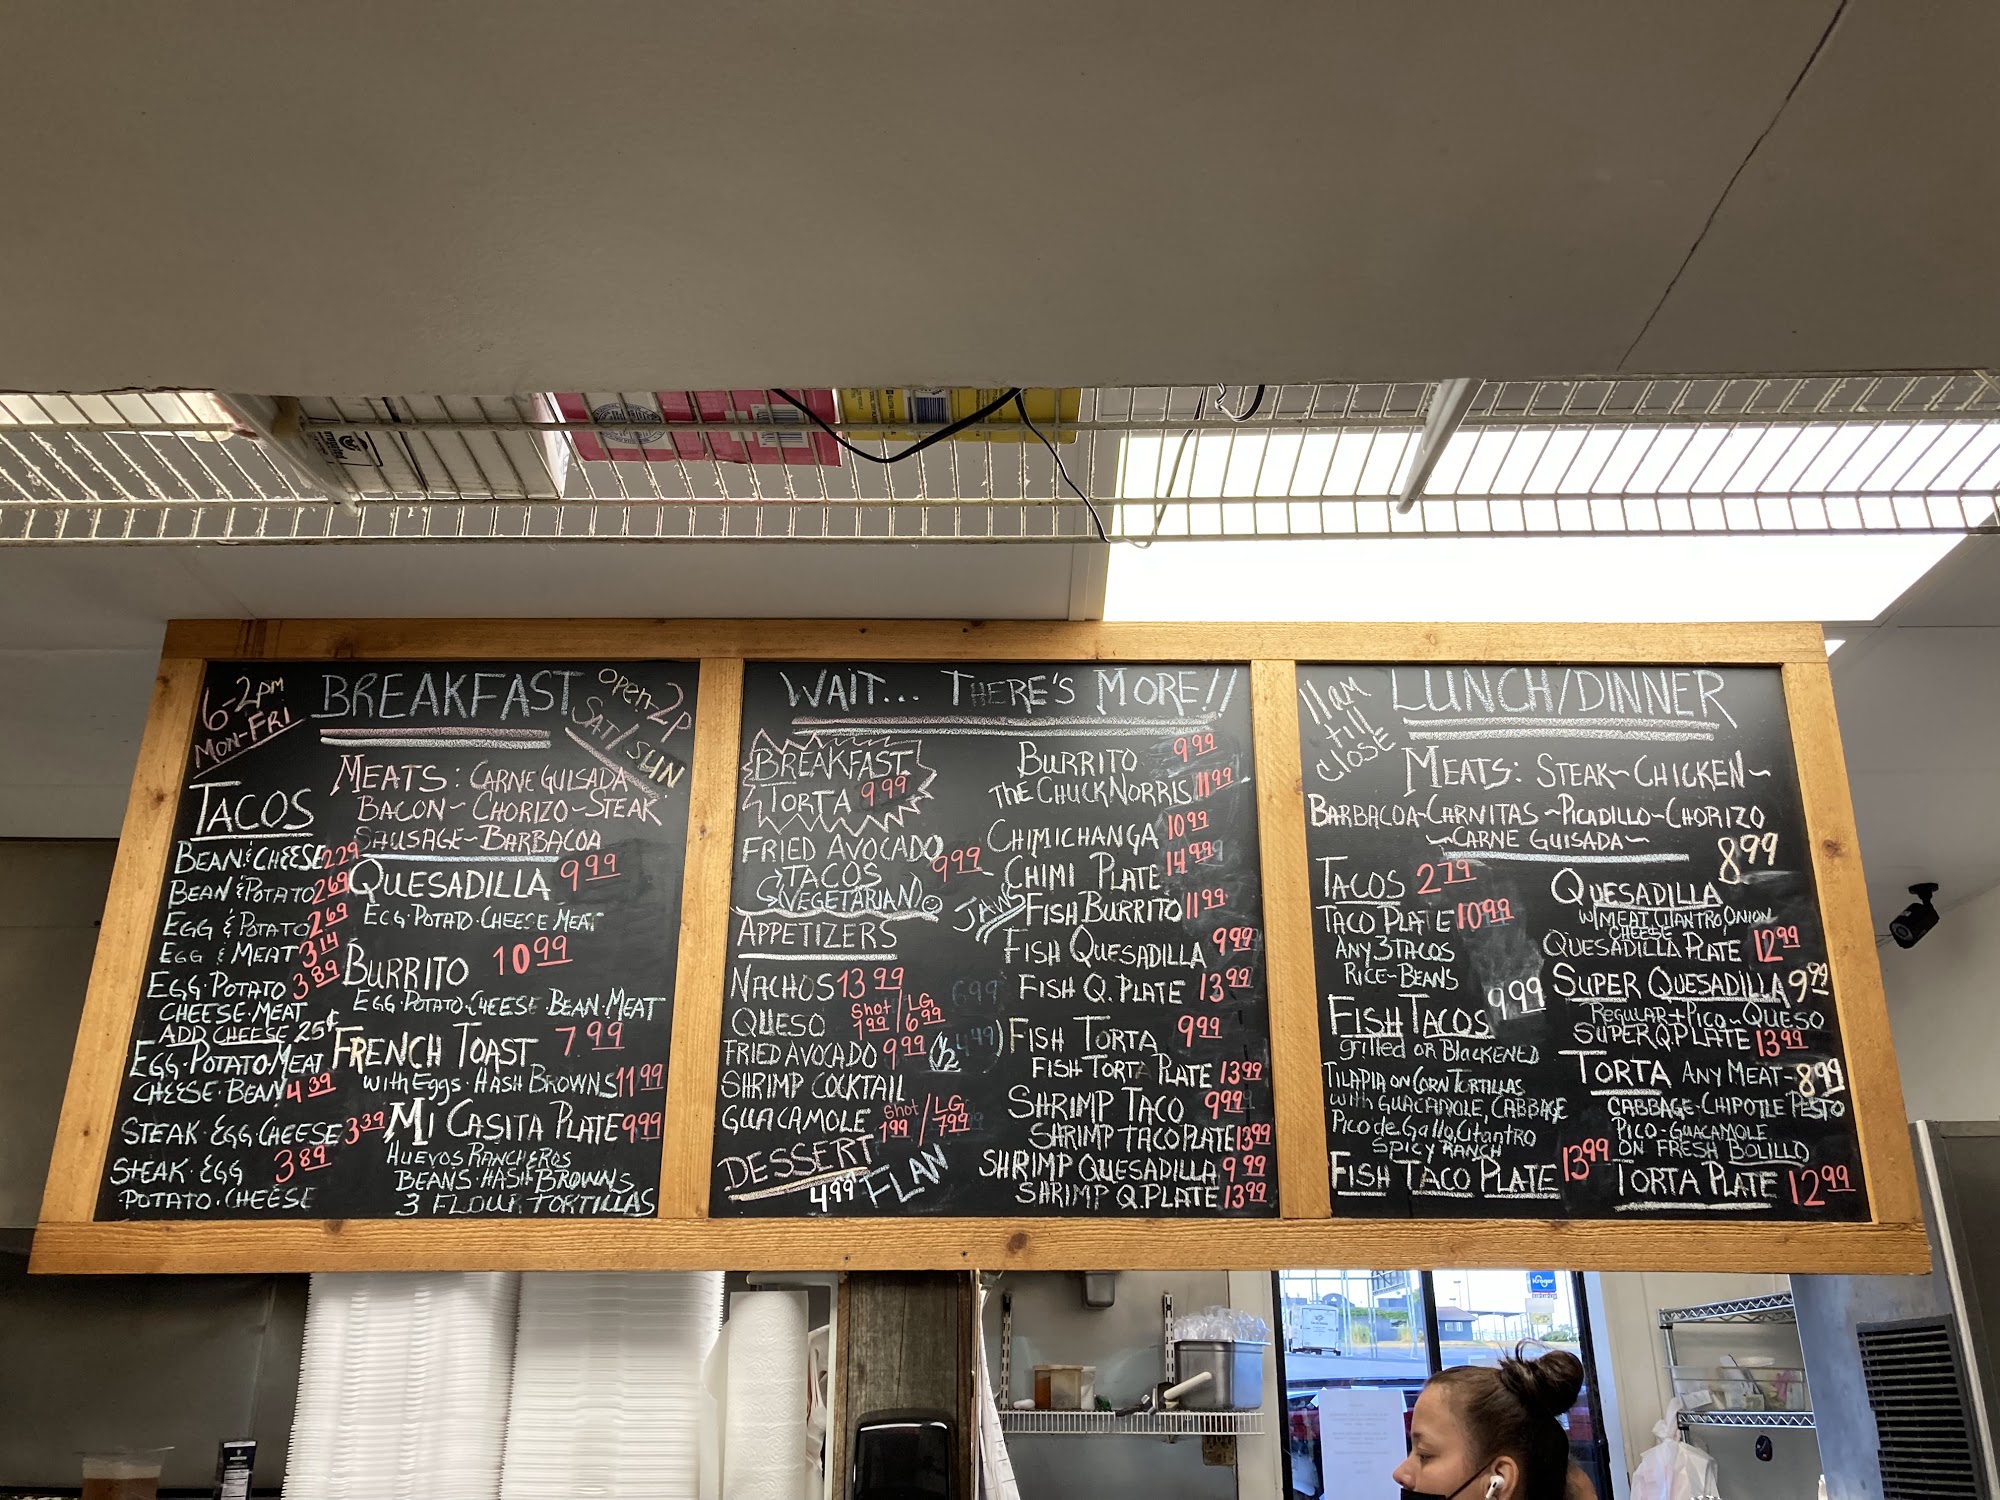 6-2pm
MON-FRI
BREAKFAST
OPEN-2P
SAT/SUN
MEATS: CARNE GUISADA
BACON~ CHORIZO~STEAK
SAUSAGE~BARBACOA
TACOS
BEAN & CHEESE 2.29
BEAN & POTATO 2.69
EGG & POTATO 2.69
EGG & MEAT 3.14
EGG·POTATO 3.89
CHEESE·MEAT
ADD CHEESE 25¢
EGG·POTATO·MEAT
CHEESE·BEAN 4.39
STEAK·EGG CHEESE 3.39
STEAK·EGG 3.89
POTATO·CHEESE
QUESADILLA 9.99
EGG·POTATO·CHEESE·MEAT
BURRITO 10.99
EGG·POTATO·CHEESE·BEAN·MEAT
FRENCH TOAST 7.99
WITH EGGS·HASH BROWNS 11.99
MI CASITA PLATE 9.99
HUEVOS RANCHEROS
BEANS·HASH BROWNS
3 FLOUR TORTILLAS
WAIT... THERE'S MORE!!
BREAKFAST
TORTA 9.99
FRIED AVOCADO
TACOS 9.99
(VEGETARIAN)
APPETIZERS
NACHOS 13.99
QUESO Shot 1.99 / LG 6.99
FRIED AVOCADO 9.99
SHRIMP COCKTAIL
GUACAMOLE Shot 1.99 / LG 7.99
DESSERT
4.99 FLAN
BURRITO 9.99
THE CHUCK NORRIS 11.99
CHIMICHANGA 10.99
CHIMI PLATE 14.99
JAWS FISH BURRITO 11.99
FISH QUESADILLA 9.99
FISH Q. PLATE 13.99
FISH TORTA 9.99
FISH TORTA PLATE 13.99
SHRIMP TACO 9.99
SHRIMP TACO PLATE 13.99
SHRIMP QUESADILLA 9.99
SHRIMP Q.PLATE 13.99
11am
till
CLOSE
LUNCH/DINNER
MEATS: STEAK~CHICKEN~
BARBACOA~CARNITAS~PICADILLO~CHORIZO
~CARNE GUISADA~
TACOS 2.79
TACO PLATE 10.99
ANY 3 TACOS
RICE-BEANS
FISH TACOS 9.99
grilled or BLACKENED
TILAPIA ON CORN TORTILLAS
WITH GUACAMOLE, CABBAGE
Pico de Gallo, Cilantro
SPICY RANCH
FISH TACO PLATE 13.99
QUESADILLA 8.99
W/MEAT, CILANTRO, ONION,
CHEESE
QUESADILLA PLATE 12.99
SUPER QUESADILLA 9.99
REGULAR + PICO~QUESO
SUPER Q.PLATE 13.99
TORTA ANY MEAT-8.99
CABBAGE·CHIPOTLE PESTO
PICO-GUACAMOLE
ON FRESH BOLILLO
TORTA PLATE 12.99
Kroger